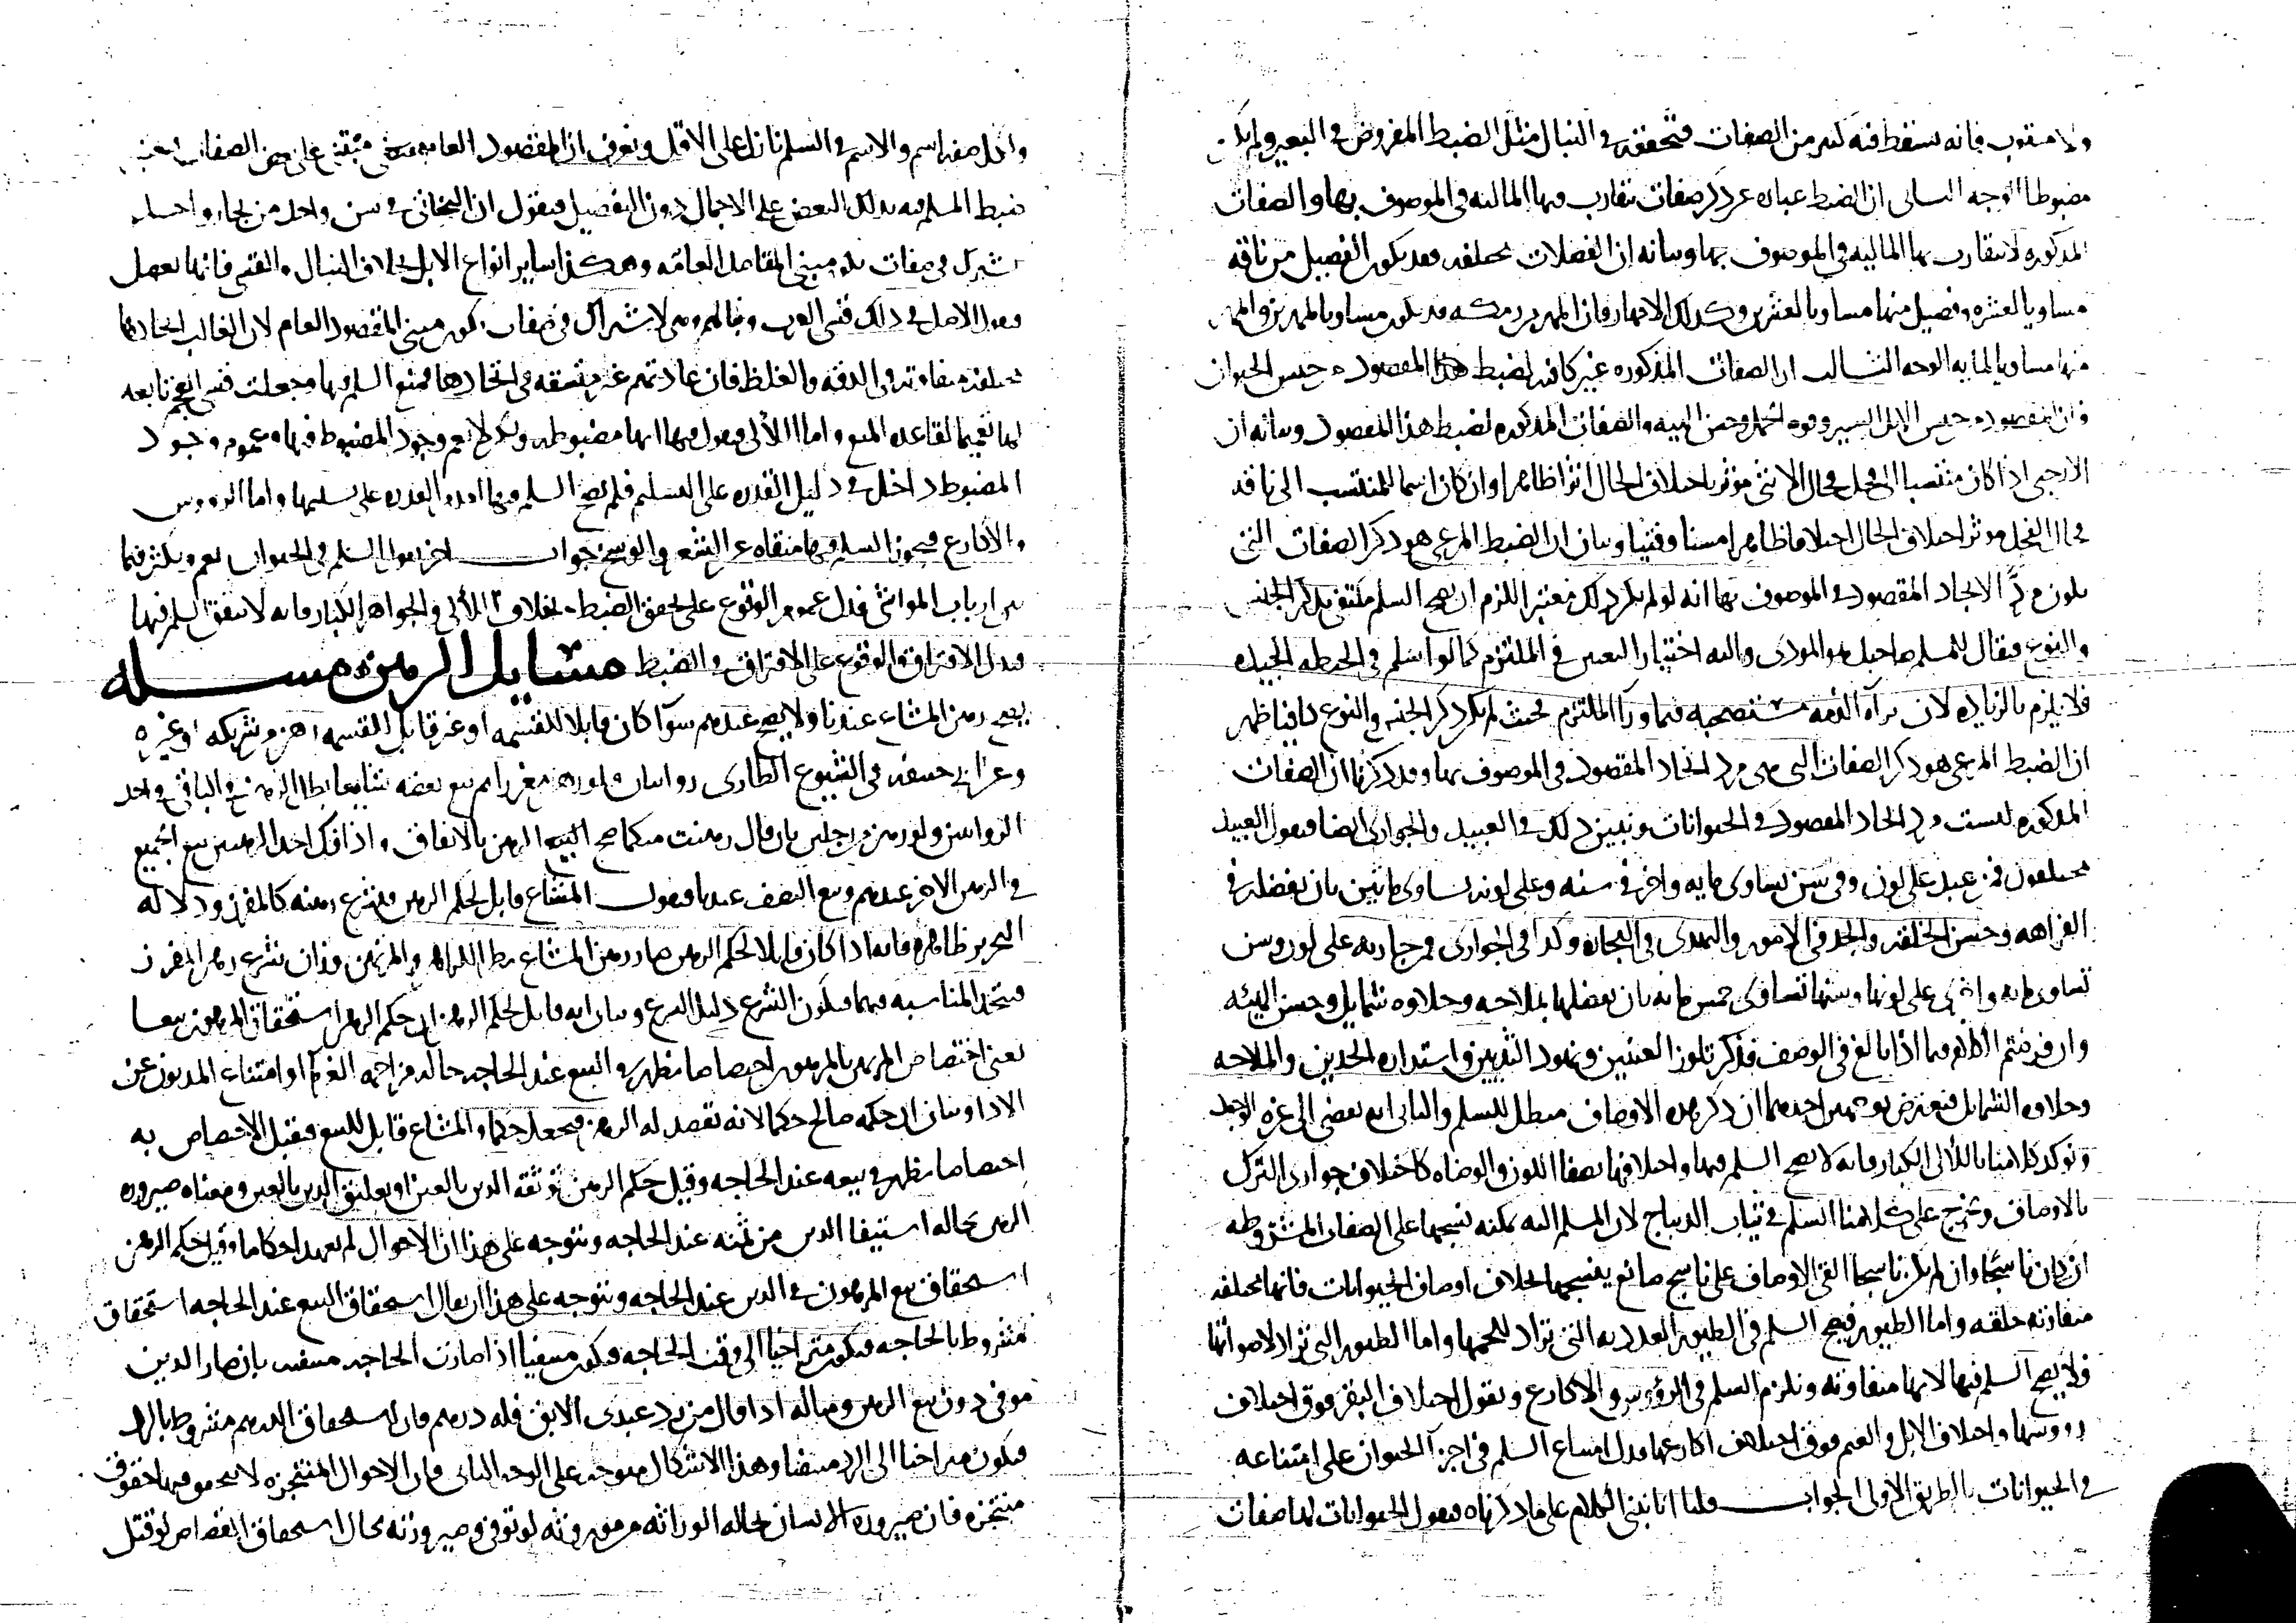 ولا مثقوب فانه تسقط فيه كثير من الصفات فتحققه في النبال مثل الضبط المفروض في البعير ولم يكن
مضبوطا الوجه الثاني ان الضبط عباره عن ذكر صفات تتقارب فيها الماليه في الموصوف بها والصفات
المذكوره لا تتقارب بها الماليه في الموصوف بها وبيانه ان الفصلات مختلفه فقد يكون الفصيل من ناقه
مساويا لعشره وفصيل منها مساويا لعشرين وكذلك الامهار فان المهر من رمكه قد يكون مساويا لمهرين والمهر
منها مساويا لمايه الوجه الثالث ان الصفات المذكوره غير كافيه لضبط هذا المقصود من جنس الحيوان
فان المقصود من جنس الابل السير وقوه الحمل وحسن الهيه والصفات المذكوره لضبط هذا المقصود وبيانه ان
الارحبي اذا كان منتسبا الى فحل فحال الانثى مؤثر باختلاف الحال اثرا ظاهرا وان كان اسما للمنتسب الى ناقه
فحال الفحل مؤثر اختلاف الحال اختلافا ظاهرا مسنا وفتيا وبيان ان الضبط المرعي هو ذكر الصفات التي
يكون مرد الاتحاد المقصود في الموصوف بها انه لو لم يكن ذلك معتبرا للزم ان يصح السلم مكتفى بذكر الجنس
والنوع فيقال للمسلم ما حبل هو المودى واليه اختيار التعيين في الملتزم كما لو اسلم في الحنطه الجيده
فلا يلزم بالزياده لان براه الذمه مستصحبه فيما ورآ الملتزم بحيث لم يكن ذكر الجنس والنوع كافيا ظهر
ان الضبط المرعي هو ذكر الصفات التي هي مرد اتحاد المقصود في الموصوف بها وقد ذكرنا ان الصفات
المذكوره ليست مرد اتحاد المقصود في الحيوانات ونبين ذلك في العبيد والجواري ايضا فنقول العبيد
مختلفون فمن عبد على لون وفي سن يساوي مايه واخر في سنه وعلى لونه يساوي مائتين بان يفضله في
الفراهه وحسن الخلقه والجد في الامور والتهدي في التجاره وكذا في الجواري فمن جاريه على لون وسن
تساوي مايه واخرى على لونها وسنها تساوي خمس مايه بان تفضلها بملاحه وحلاوه شمايل وحسن الهيئه
وان فرضتم الكلام فيما اذا بالغ في الوصف فذكر تلوز العينين ونهود الثديين واستداره الخدين والملاحه
وحلاوه الشمايل فنعترض بوجهين احدهما ان ذكر هذه الاوصاف مبطل للسلم والثاني انه يفضي الى عزه الوجود
ونوكد كلامنا باللالي الكبار فانه لا يصح السلم فيها واختلافها بصفا اللون والوضاه كاختلاف جواري الترك
بالاوصاف وتخرج على كلامنا السلم في ثياب الديباج لان المسلم اليه يمكنه نسجها على الصفات المشروطه
ان كان ناسجا وان لم يكن ناسجا القى الاوصاف على ناسج صانع ينسجها بخلاف اوصاف الحيوانات فانها مختلفه
متفاوته خلقه واما الطيور فيصح السلم في الطيور العدديه التي تراد للحمها واما الطيور التي تراد لاصواتها
فلا يصح السلم فيها لانها متفاوته ونلزم السلم في الرؤوس والاكارع ونقول اختلاف البقر فوق اختلاف
رووسها واختلاف الابل والغنم فوق اختلاف اكارعها فدل امتناع السلم في اجزآ الحيوان على امتناعه
في الحيوانات بالطريق الاولى الجواب قلنا انا نبني الكلام على ما ذكرناه فنقول الحيوانات لها صفات
ولكل صفه اسم والاسم في السلم نازل على الاقل ونعرف ان المقصود العام مبتنى على بعض الصفات
ضبط المسلم فيه بذلك البعض على الاجمال دون التفصيل فيقول ان البخاتي في سن واحد من نجار واحد
تشترك في صفات هي مبنى المقاصد العامه وهكذا ساير انواع الابل بخلاف النبال والقسي فانها تعمل
فنقول الاصل في ذلك قسي العرب ونبالهم وهي لا تشترك في صفات تكون مبنى المقصود العام لان الغالب اتحادها
مختلفه متفاوته في الدقه والغلظ فان عادتهم غير متسقه في اتحادها فمنع السلم فيها وجعلت قسي العجم تابعه
لها تعميما لقاعده المنع واما اللالي فنقول فيها انها مضبوطه ولكن لا يعم وجود المضبوط فيها وعموم وجود
المضبوط داخل في دليل القدره على التسليم فلم يصح السلم فيها لعدم القدره على تسليمها واما الرووس
والاكارع فيجوز السلم فيها منقاه عن الشعر والوسخ جواب اخر نقول السلم في الحيوان يعم ويكثر فيما
بين ارباب المواشي فدل عموم الوقوع على تحقق الضبط بخلاف اللالي والجواهر الكبار فانه لا يتفق السلم فيها
فدل الافتراق في الوقوع على الافتراق في الضبط مسايل الرهن مسله
يصح رهن المشاع عندنا ولا يصح عندهم سوآ كان قابلا للقسمه او غير قابل للقسمه رهن من شريكه او غيره
وعن ابي حنيفه في الشيوع الطاري روايتان ولو رهن مفرزا ثم بيع بعضه شايعا بطل الرهن في الباقي في احد
الروايتين ولو رهن من رجلين بان قال رهنت منكما صح البيع الرهن بالاتفاق واذا فك احد الرهنين بيع الجميع
في الرهن الاخر عندهم وبيع النصف عندنا فنقول المشاع قابل لحكم الرهن فيشرع رهنه كالمفرز ودلاله
التحرير ظاهره فانه اذا كان قابلا لحكم الرهن صار رهن المشاع نظرا للراهن والمرتهن وزان شرع رهن المفرز
فتتحد المناسبه فيهما فيكون الشرع دليل الشرع وبيان انه قابل لحكم الرهن ان حكم الرهن استحقاق المرهون بيعا
نعني اختصاص المرتهن بالمرهون اختصاصا يظهر في البيع عند الحاجه حاله مزاحمه الغرمآ او امتناع المديون عن
الادا وبيان ان حكمه صالح حكما لانه يقصد له الرهن فيجعل حكما والمشاع قابل للبيع فيقبل الاختصاص به
اختصاصا يظهر في بيعه عند الحاجه وقيل حكم الرهن توثقه الدين بالعين او تعليق الدين بالعين ومعناه صيروره
الرهن بحاله استيفا الدين من ثمنه عند الحاجه ونتوجه على هذا ان الاحوال لم تعهد احكاما وقيل حكم الرهن
استحقاق بيع المرهون في الدين عند الحاجه ونتوجه على هذا ان يقال استحقاق البيع عند الحاجه استحقاق
مشروط بالحاجه فيكون متراخيا الى وقت الحاجه فيكون منتفيا اذا صارت الحاجه منتفيه بان صار الدين
موفى دون بيع الرهن ومثاله اذا قال من رد عبدي الابق فله درهم فان استحقاق الدرهم مشروط بالرد
فيكون متراخيا الى الرد منتفيا وهذا الاشكال متوجه على الوجه الثاني فان الاحوال المنتجزه لا تتحقق فيها حقوق
منتجزه فان صيروره الانسان بحاله الوراثه من مورثه لو توفي وصيرورته بحال استحقاق القصاص لو قتل